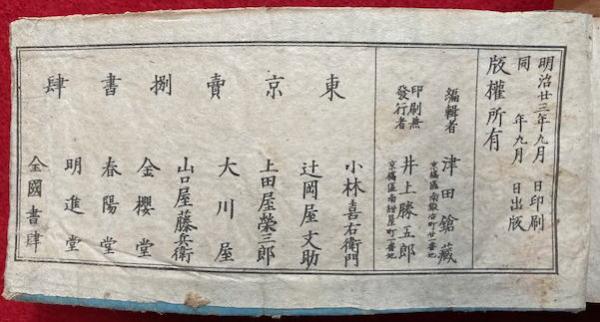 明治廿三年九月 日印刷
同 年九月 日出版
版權所有
編輯者 津田鎗藏
京橋區南鍛冶町廿二番地
印刷兼
發行者 井上勝五郎
京橋區南紺屋町一番地
東京賣捌書肆
小林喜右衛門
辻岡屋文助
上田屋榮三郎
大川屋
山口屋藤兵衛
金櫻堂
春陽堂
明進堂
全國書肆